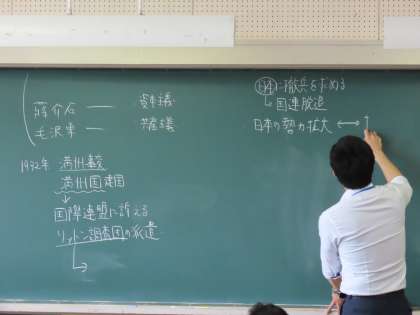 蔣介石 ― 資本主義
毛沢東 ― 共産主義
1932年 満州事変
満州国建国
↓
国際連盟に訴える
リットン調査団の派遣
日本に撤兵を求める
↳国連脱退
日本の勢力拡大 ←→